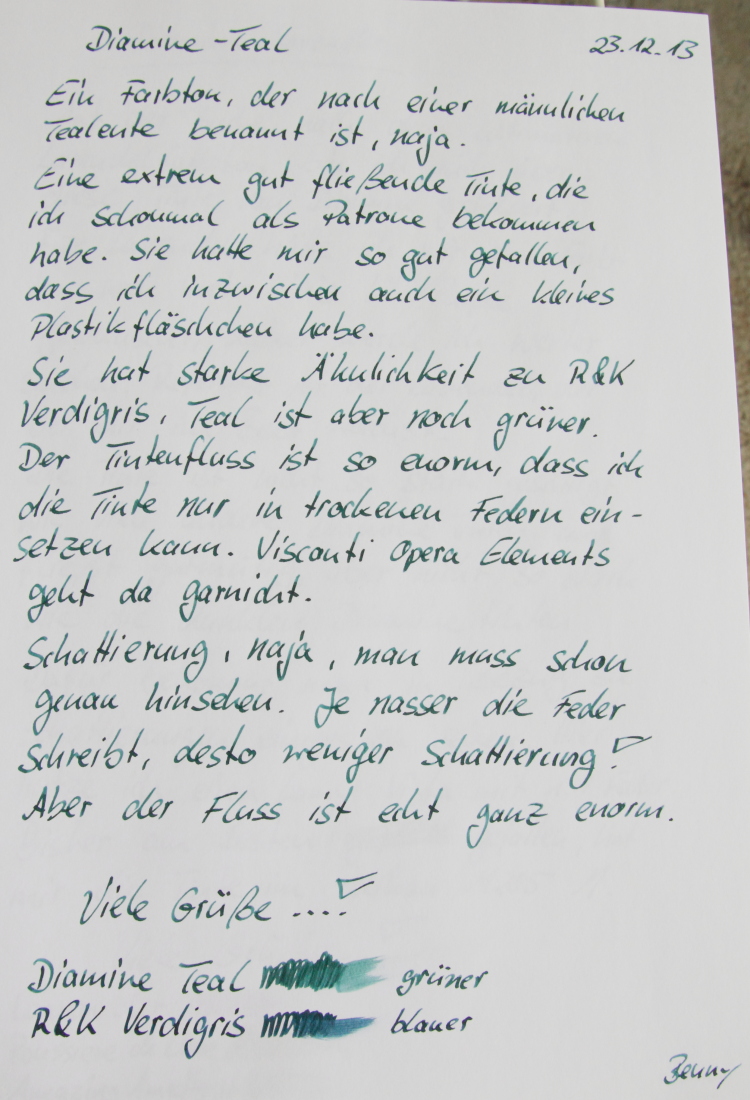 Diamine - Teal 23.12.13
Ein Farbton, der nach einer männlichen
Tealente benannt ist, naja.
Eine extrem gut fließende Tinte, die
ich schonmal als Patrone bekommen
habe. Sie hatte mir so gut gefallen,
dass ich inzwischen auch ein kleines
Plastikfläschchen habe.
Sie hat starke Ähnlichkeit zu R&K
Verdigris, Teal ist aber noch grüner.
Der Tintenfluss ist so enorm, dass ich
die Tinte nur in trockenen Federn ein-
setzen kann. Visconti Opera Elements
geht da garnicht.
Schattierung, naja, man muss schon
genau hinsehen. Je nasser die Feder
schreibt, desto weniger Schattierung!
Aber der Fluss ist echt ganz enorm.
Viele Grüße ....!
Diamine Teal grüner
R&K Verdigris blauer
Benny